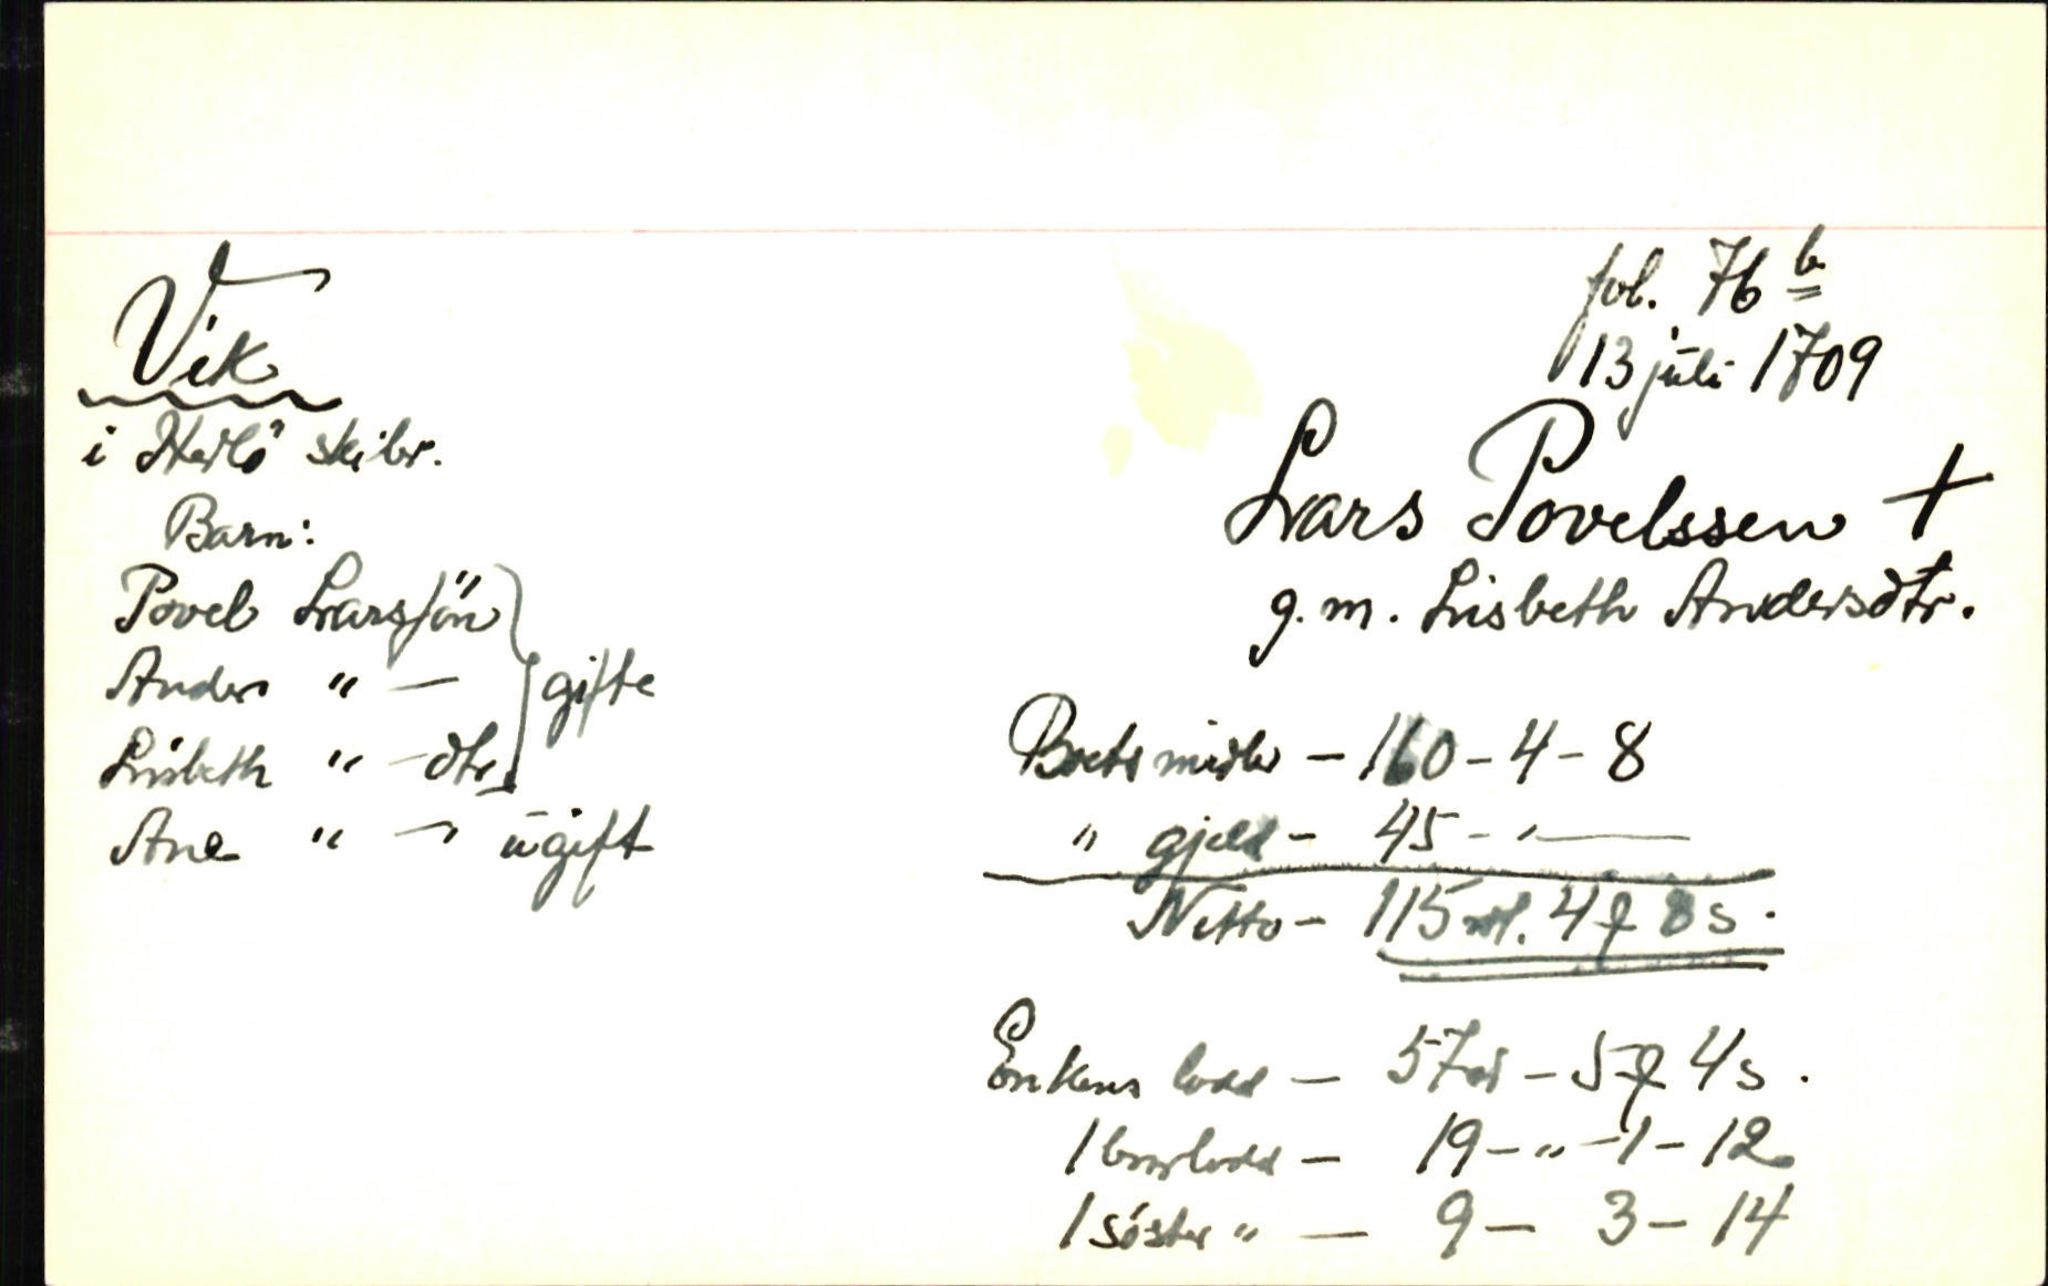 Vik
i Herlö skibr.
Barn:
Povel Larssön
Anders " —
Lisbeth " — dtr
} gifte
Ane " — " ugift
fol. 76 b
13 juli 1709
Lars Povelssen +
g. m. Lisbeth Andersdtr.
Boets midler — 160 - 4 - 8
" gjeld - 45 - " —
Netto - 115 rdl. 4 ꝑ 8 s.
Enkens lodd — 57 rd - 5 ꝑ 4 s.
1 brorlodd — 19 - " - 1 - 12
1 söster " — 9 — 3 - 14